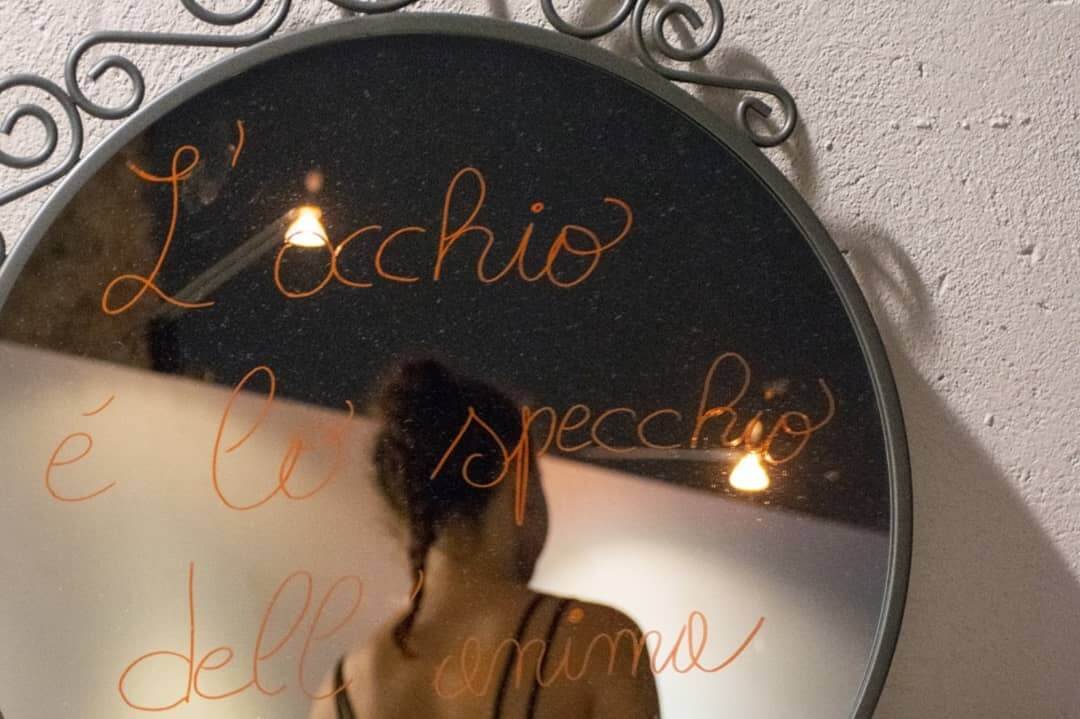 L'occhio
é lo specchio
dell'anima